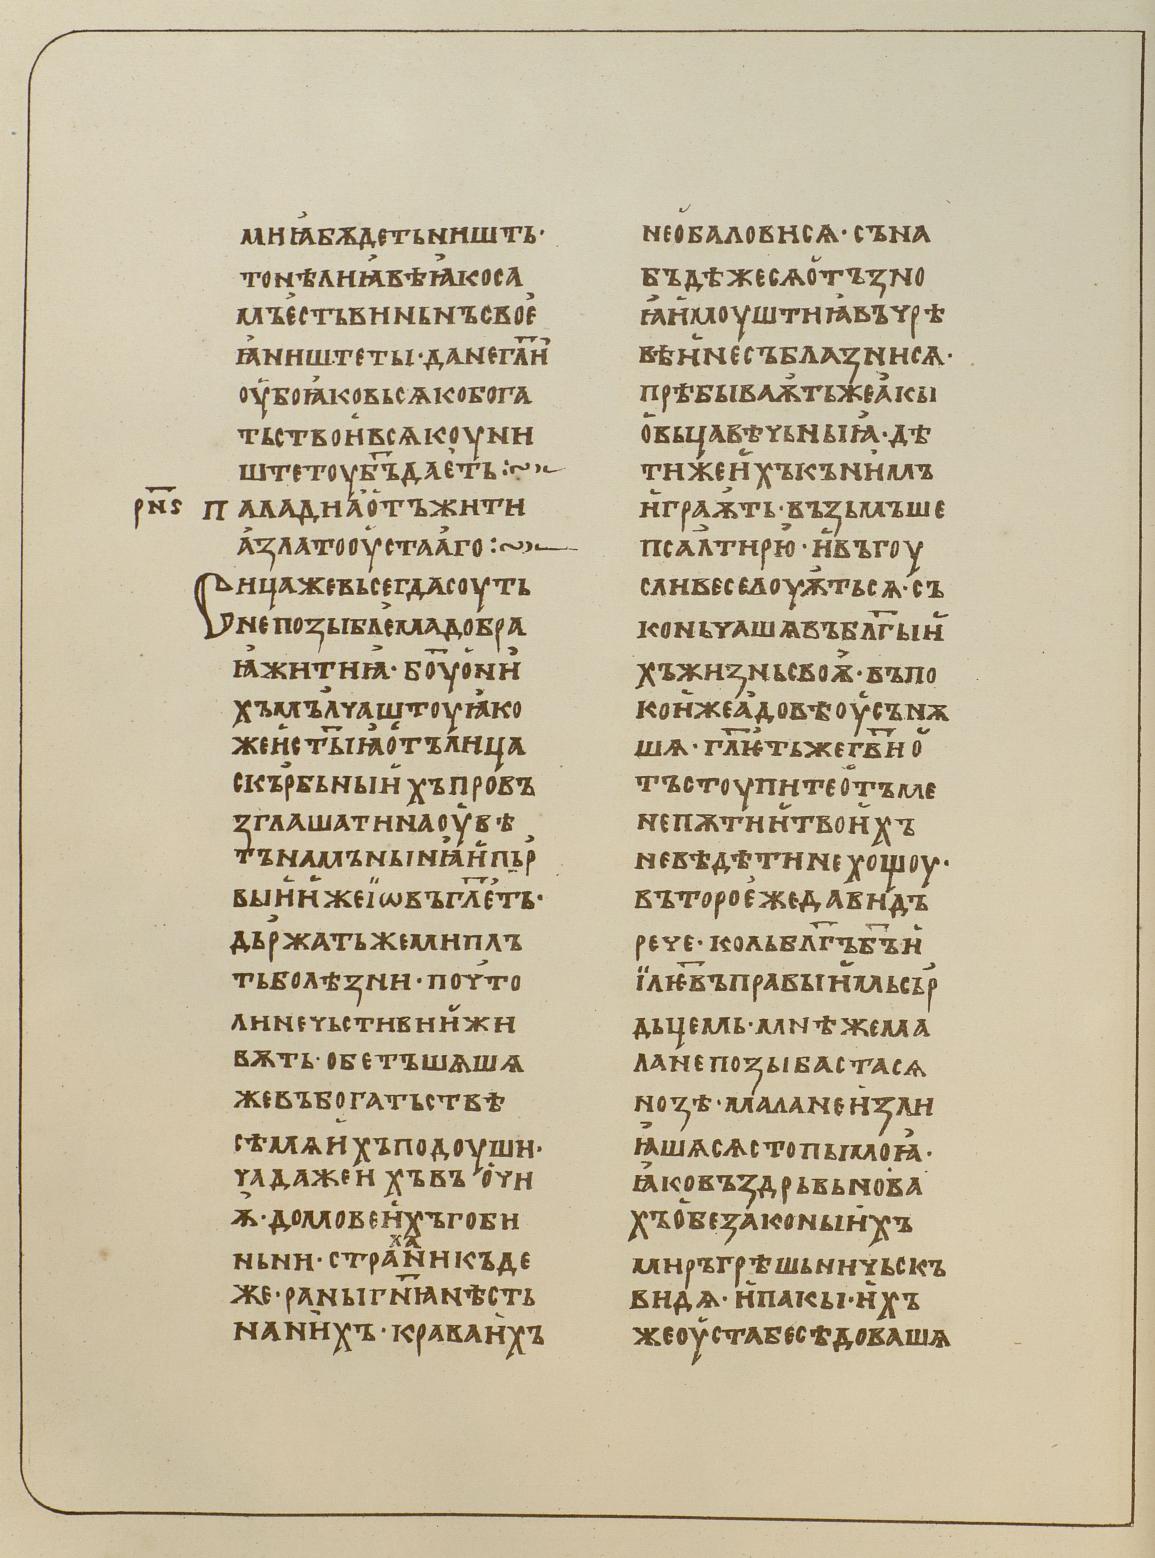 мниꙗбѫдетьништь·
тонѣлниꙗвѣꙗкоса
мъестьвиньнъсвое
ꙗништеты·данегл҃и
оубоꙗковьсѧкобога
тьствоивсѧкоуни
штетоуб҃ъдаеть:~
рн҃ѕ паладиаотъжити
азлатооустааго:~
Сицажевьсегдасоуть
непозыблемадобра
ꙗжитиꙗ· бо҃уони
хъмълчаштоуꙗко
жеист҃ыꙗотълица
скърбьныихъпровъ
зглашатинаоувѣ
тънамънынꙗипьр
выиижеіѡвъгл҃еть·
дьржатьжемиплъ
тьболѣзни·почто
линечьстивниижи
вѫть·обетъшѧшѧ
жевъбогатьствѣ
сѣмѧихъподоуши·
чадажеихъвъочи
ѭ·домовеихъгоби
ньни·страханикъде
же·раныгн҃ꙗнѣсть
нанихъ·краваихъ
необаловисѧ·съна
бъдѣжесѧотъзно
ꙗимоуштиꙗвъчрѣ
вѣинесъблазнисѧ·
прѣбываѭтьжеакы
овьцавѣчьныꙗ·дѣ
тижеихъкънимъ
играѭть·възьмъше
псалтирю·ивъгоу
слибеседоуѭтьсѧ·съ
коньчашѧвъбл҃гыи
хъжизньсвоѭ·въпо
коижеадовѣоусънѫ
шѧ·гл҃ѥтьжегв҃ио
тъстоупитеотъме
непѫтиитвоихъ
невѣдѣтинехощоу·
вътороежедавидъ
рече·кольбл҃гъб҃ъи
їл҃ѥвъправыимьсьр
дьцемь·мнѣжема
ланепозыбастасѧ
нозѣ·маланеизли
ꙗшѧсѧстопымоꙗ·
ꙗковъздрьвьнова
хъобезаконыихъ
миръгрѣшьничьскъ
видѧ·ипакы·ихъ
жеоустабесѣдовашѧ